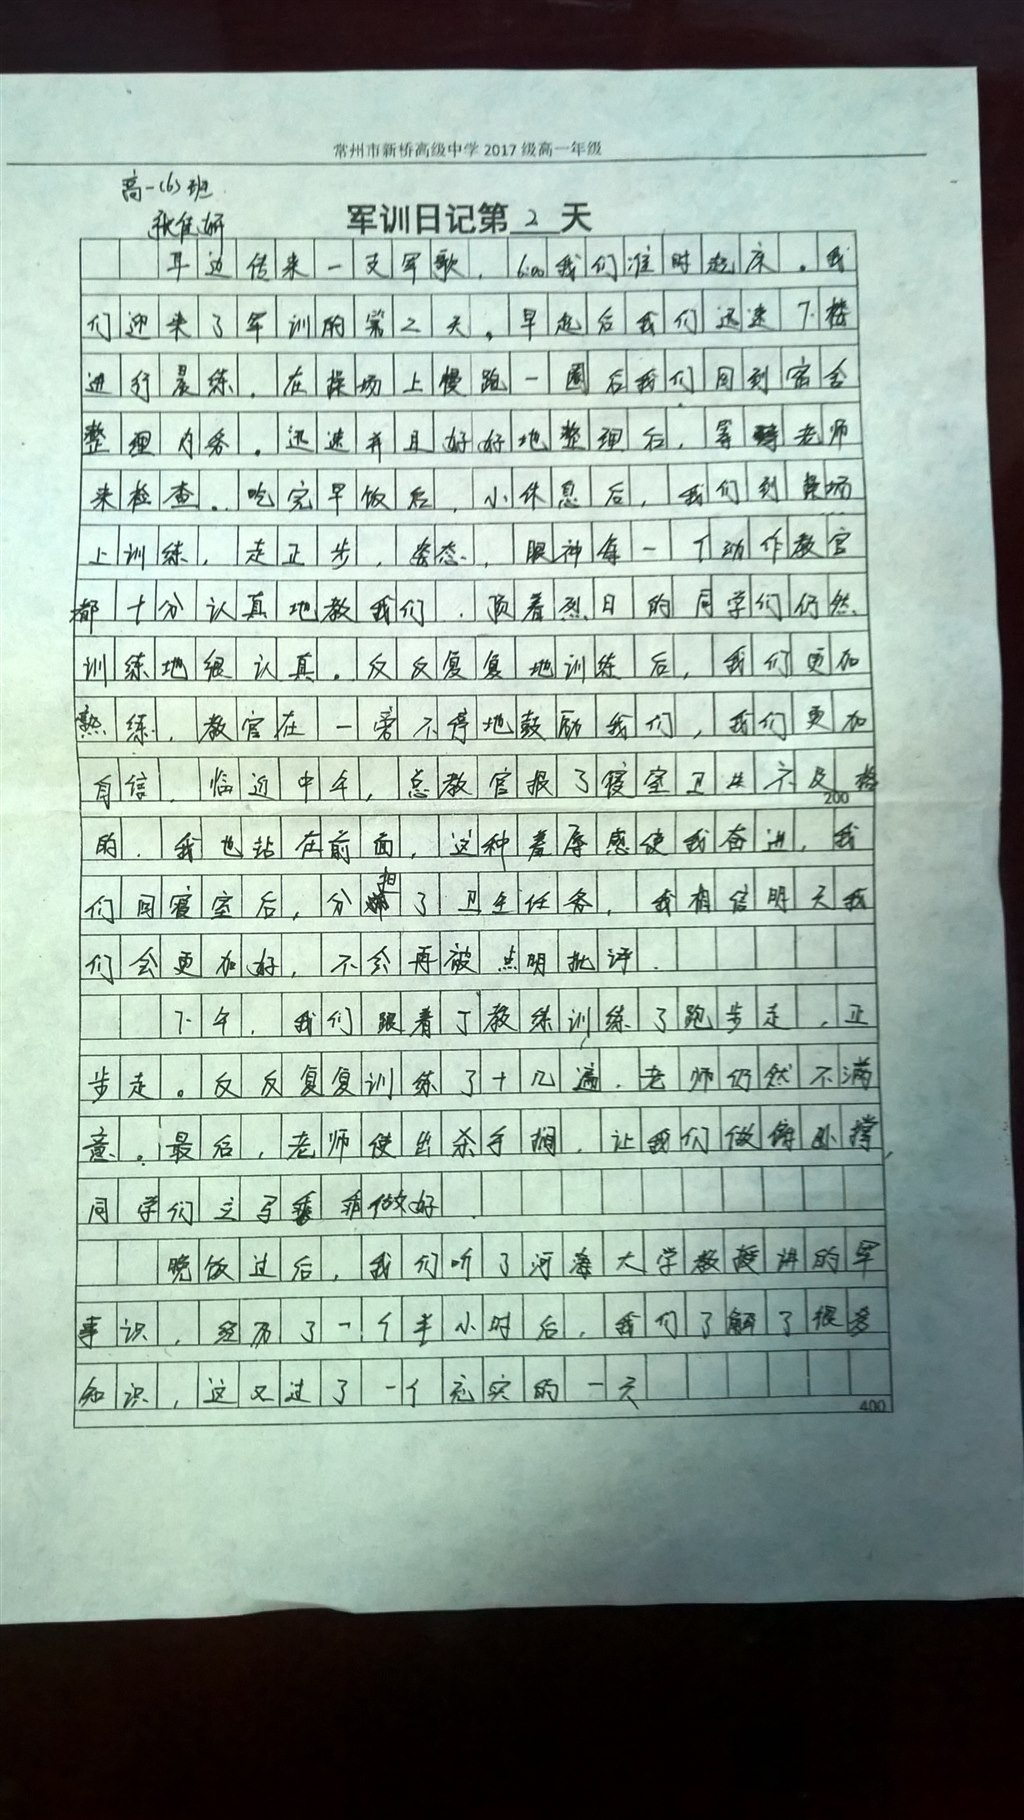 常州市新桥高级中学2017级高一年级
高一(6)班
军训日记第2天
张佳妍
耳边传来一支军歌，6:00我们准时起床。我
们迎来了军训的第二天。早起后我们迅速下楼
进行晨练。在操场上慢跑一圈后我们回到宿舍
整理内务。迅速并且好好地整理后，等待老师
来检查。吃完早饭后，小休息后，我们到操场
上训练，走正步，姿态，眼神每一个动作教官
都十分认真地教我们．顶着烈日的同学们仍然
训练地很认真。反反复复地训练后，我们更加
熟练．教官在一旁不停地鼓励我们，我们更加
自信．临近中午，总教官报了寝室卫生不及格
200
的．我也站在前面，这种羞辱感使我奋进．我
们回寝室后，分担了卫生任务，我相信明天我
们会更加好，不会再被点明批评．
下午，我们跟着丁教练训练了跑步走，正
步走。反反复复训练了十几遍．老师仍然不满
意。最后，老师使出杀手锏，让我们做俯卧撑，
同学们立马做好
晚饭过后，我们听了河海大学教授讲的军
事识，经历了一个半小时后，我们了解了很多
知识，这又过了一个充实的一天
400